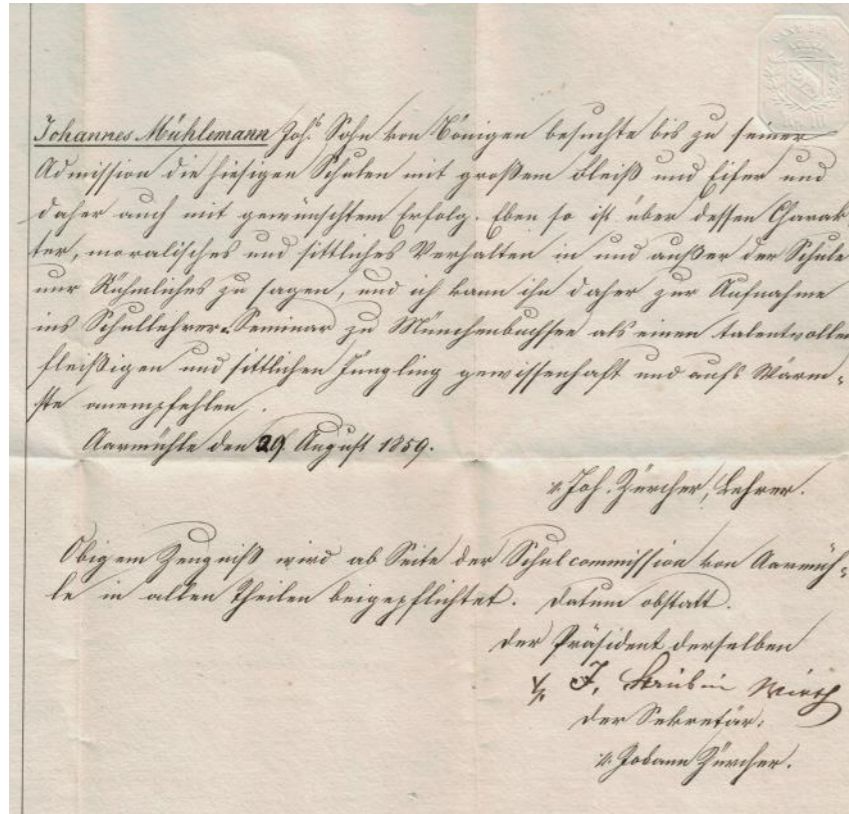 Johannes Mühlemann Joh.s Sohn von Bönigen besuchte bis zu seiner
Admission die hiesigen Schulen mit großem Fleiß und Eifer und
daher auch mit gewünschtem Erfolg. Eben so ist über dessen Charak-
ter, moralisches und sittliches Verhalten in und außer der Schule
nur Rühmliches zu sagen, und ich kann ihn daher zur Aufnahme
ins Schullehrer-Seminar zu Münchenbuchsee als einen talentvollen
fleißigen und sittlichen Jüngling gewissenhaft und aufs Wärm-
ste anempfehlen.
Aarmühle den 29 August 1859.
Joh. Zürcher, Lehrer.
Obigem Zeugniß wird ab Seite der Schulcommission von Aarmüh-
le in allen Theilen beigepflichtet. Datum obstatt.
Der Präsident derselben
J. Strübin Wirth
Der Sekretär:
Johann Zürcher.